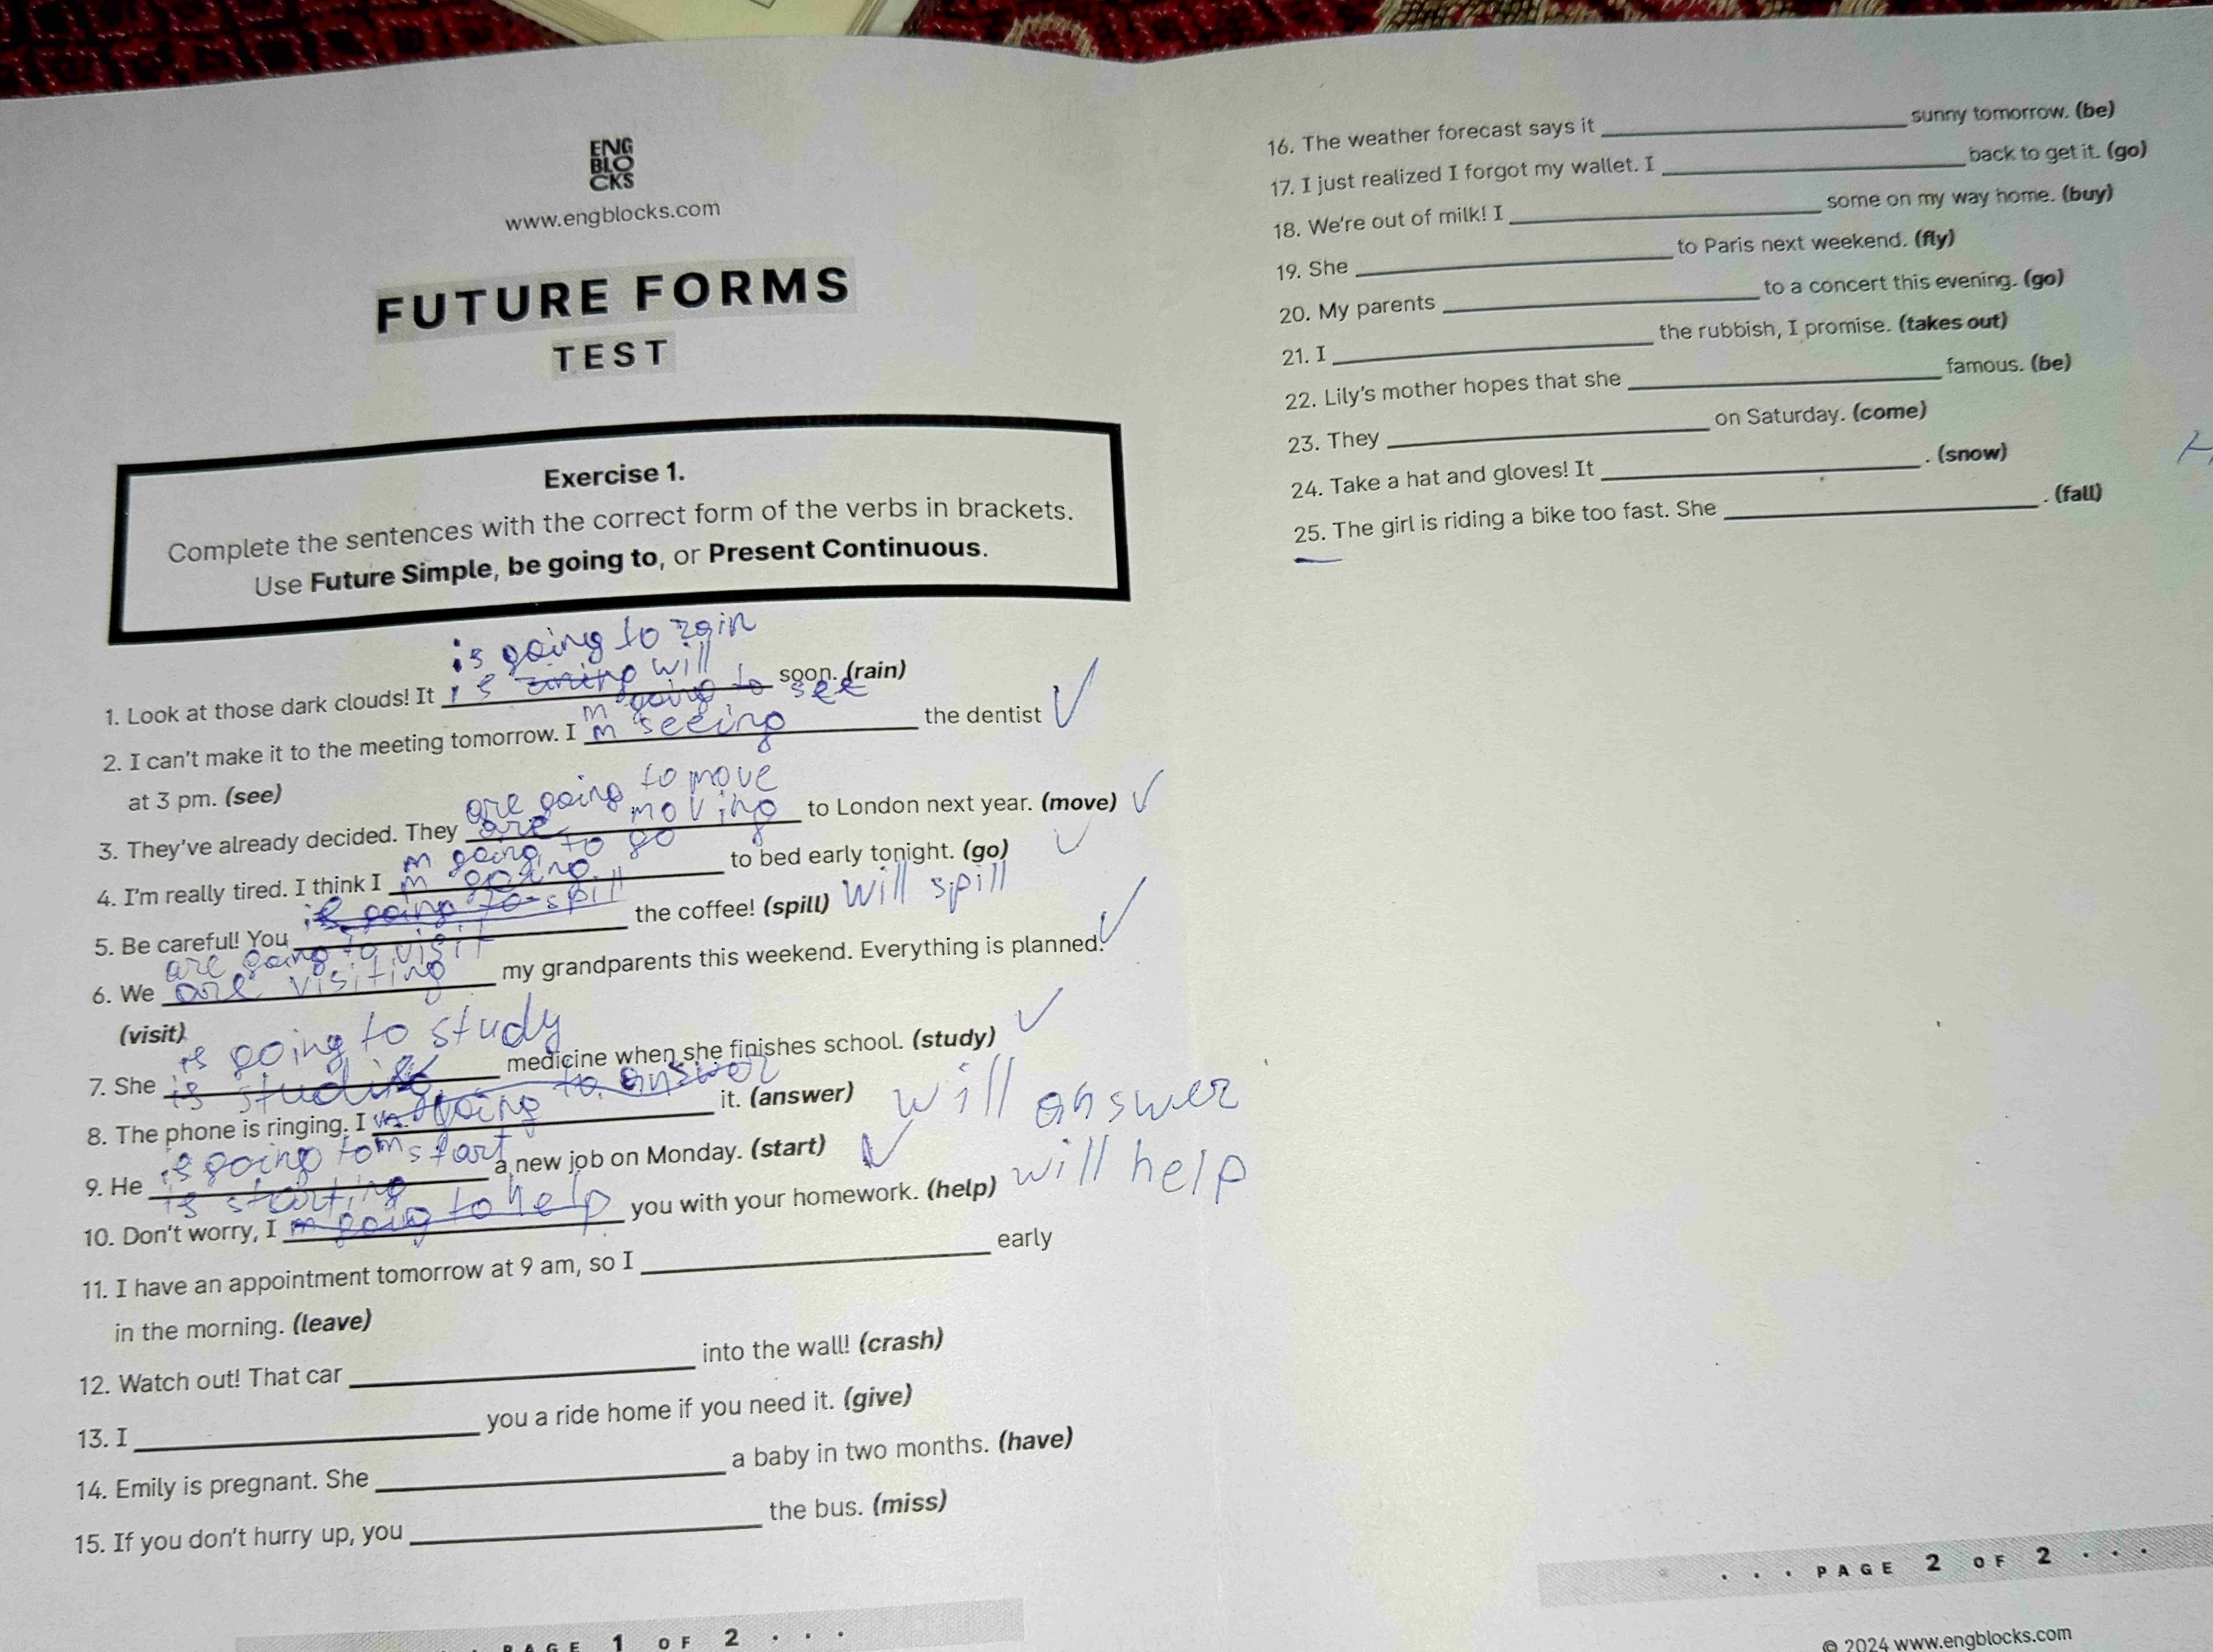 ENG
BLO
CKS
www.engblocks.com
FUTURE FORMS
TEST
Exercise 1.
Complete the sentences with the correct form of the verbs in brackets.
Use Future Simple, be going to, or Present Continuous.
is going to rain
will
1. Look at those dark clouds! It is soon. (rain)
m going to see
2. I can't make it to the meeting tomorrow. I m seeing the dentist
at 3 pm. (see)
are going to move
3. They've already decided. They are moving to London next year. (move)
m going to go
4. I'm really tired. I think I m going to bed early tonight. (go)
5. Be careful! You is going to spill the coffee! (spill) will spill
are going to visit
6. We are visiting my grandparents this weekend. Everything is planned.
(visit)
is going to study
7. She is medicine when she finishes school. (study)
8. The phone is ringing. I m going to answer it. (answer) will answer
is going to start
9. He is starting a new job on Monday. (start)
10. Don't worry, I m going to help you with your homework. (help) will help
11. I have an appointment tomorrow at 9 am, so I early
in the morning. (leave)
12. Watch out! That car into the wall! (crash)
13. I you a ride home if you need it. (give)
14. Emily is pregnant. She a baby in two months. (have)
15. If you don't hurry up, you the bus. (miss)
PAGE 1 OF 2 . . .
16. The weather forecast says it sunny tomorrow. (be)
17. I just realized I forgot my wallet. I back to get it. (go)
18. We're out of milk! I some on my way home. (buy)
19. She to Paris next weekend. (fly)
20. My parents to a concert this evening. (go)
21. I the rubbish, I promise. (takes out)
22. Lily's mother hopes that she famous. (be)
23. They on Saturday. (come)
24. Take a hat and gloves! It . (snow)
25. The girl is riding a bike too fast. She . (fall)
. . . PAGE 2 OF 2 . . .
© 2024 www.engblocks.com